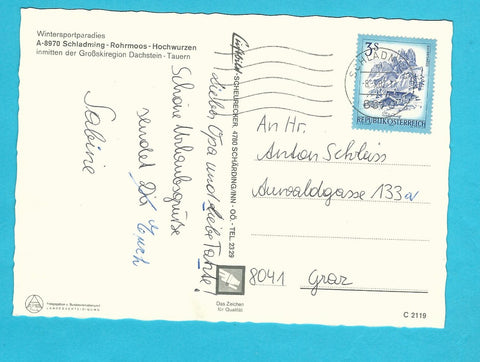 Wintersportparadies
A-8970 Schladming - Rohrmoos - Hochwurzen
inmitten der Großskiregion Dachstein - Tauern
Lieber Opa und liebe Tante!
Schöne Urlaubsgrüße
sendet Euch
Sabine
SCHEURECKER, 4780 SCHÄRDING/INN - OÖ. - TEL. 2329
3S
SCHLADMING
REPUBLIK ÖSTERREICH
An Hr.
Anton Schleiss
Auwaldgasse 133a
8041 Graz
Das Zeichen
für Qualität
C 2119